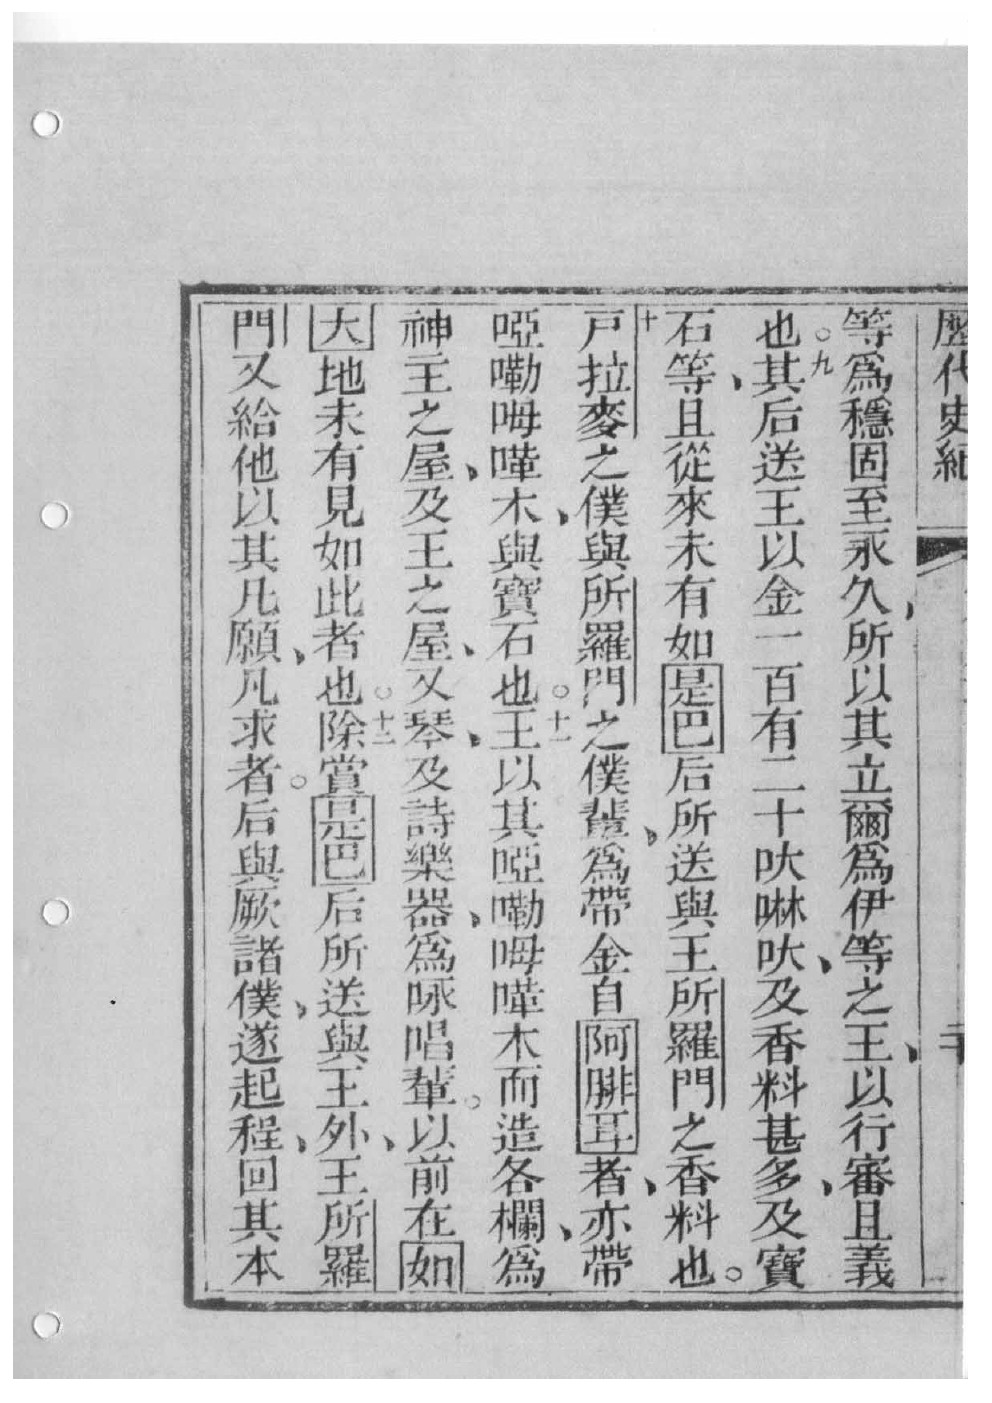 歷代史紀
等爲穩固至永久、所以其立爾爲伊等之王、以行審且義
也○九其后送王以金一百有二十呔啉呔、及香料甚多、及寶
石等、且從來未有如是巴后所送與王所羅門之香料也○
十戶拉麥之僕與所羅門之僕輩、爲帶金自阿腓耳者、亦帶
啞嘞呣㗿木、與寶石也○十一王以其啞嘞呣㗿木而造各欄、爲
神主之屋、及王之屋、又琴、及詩樂器、爲咏唱輩○以前在如
大地未有見如此者也○十二除賞是巴后所送與王外、王所羅
門又給他以其凡願、凡求者○后與厥諸僕、遂起程、回其本